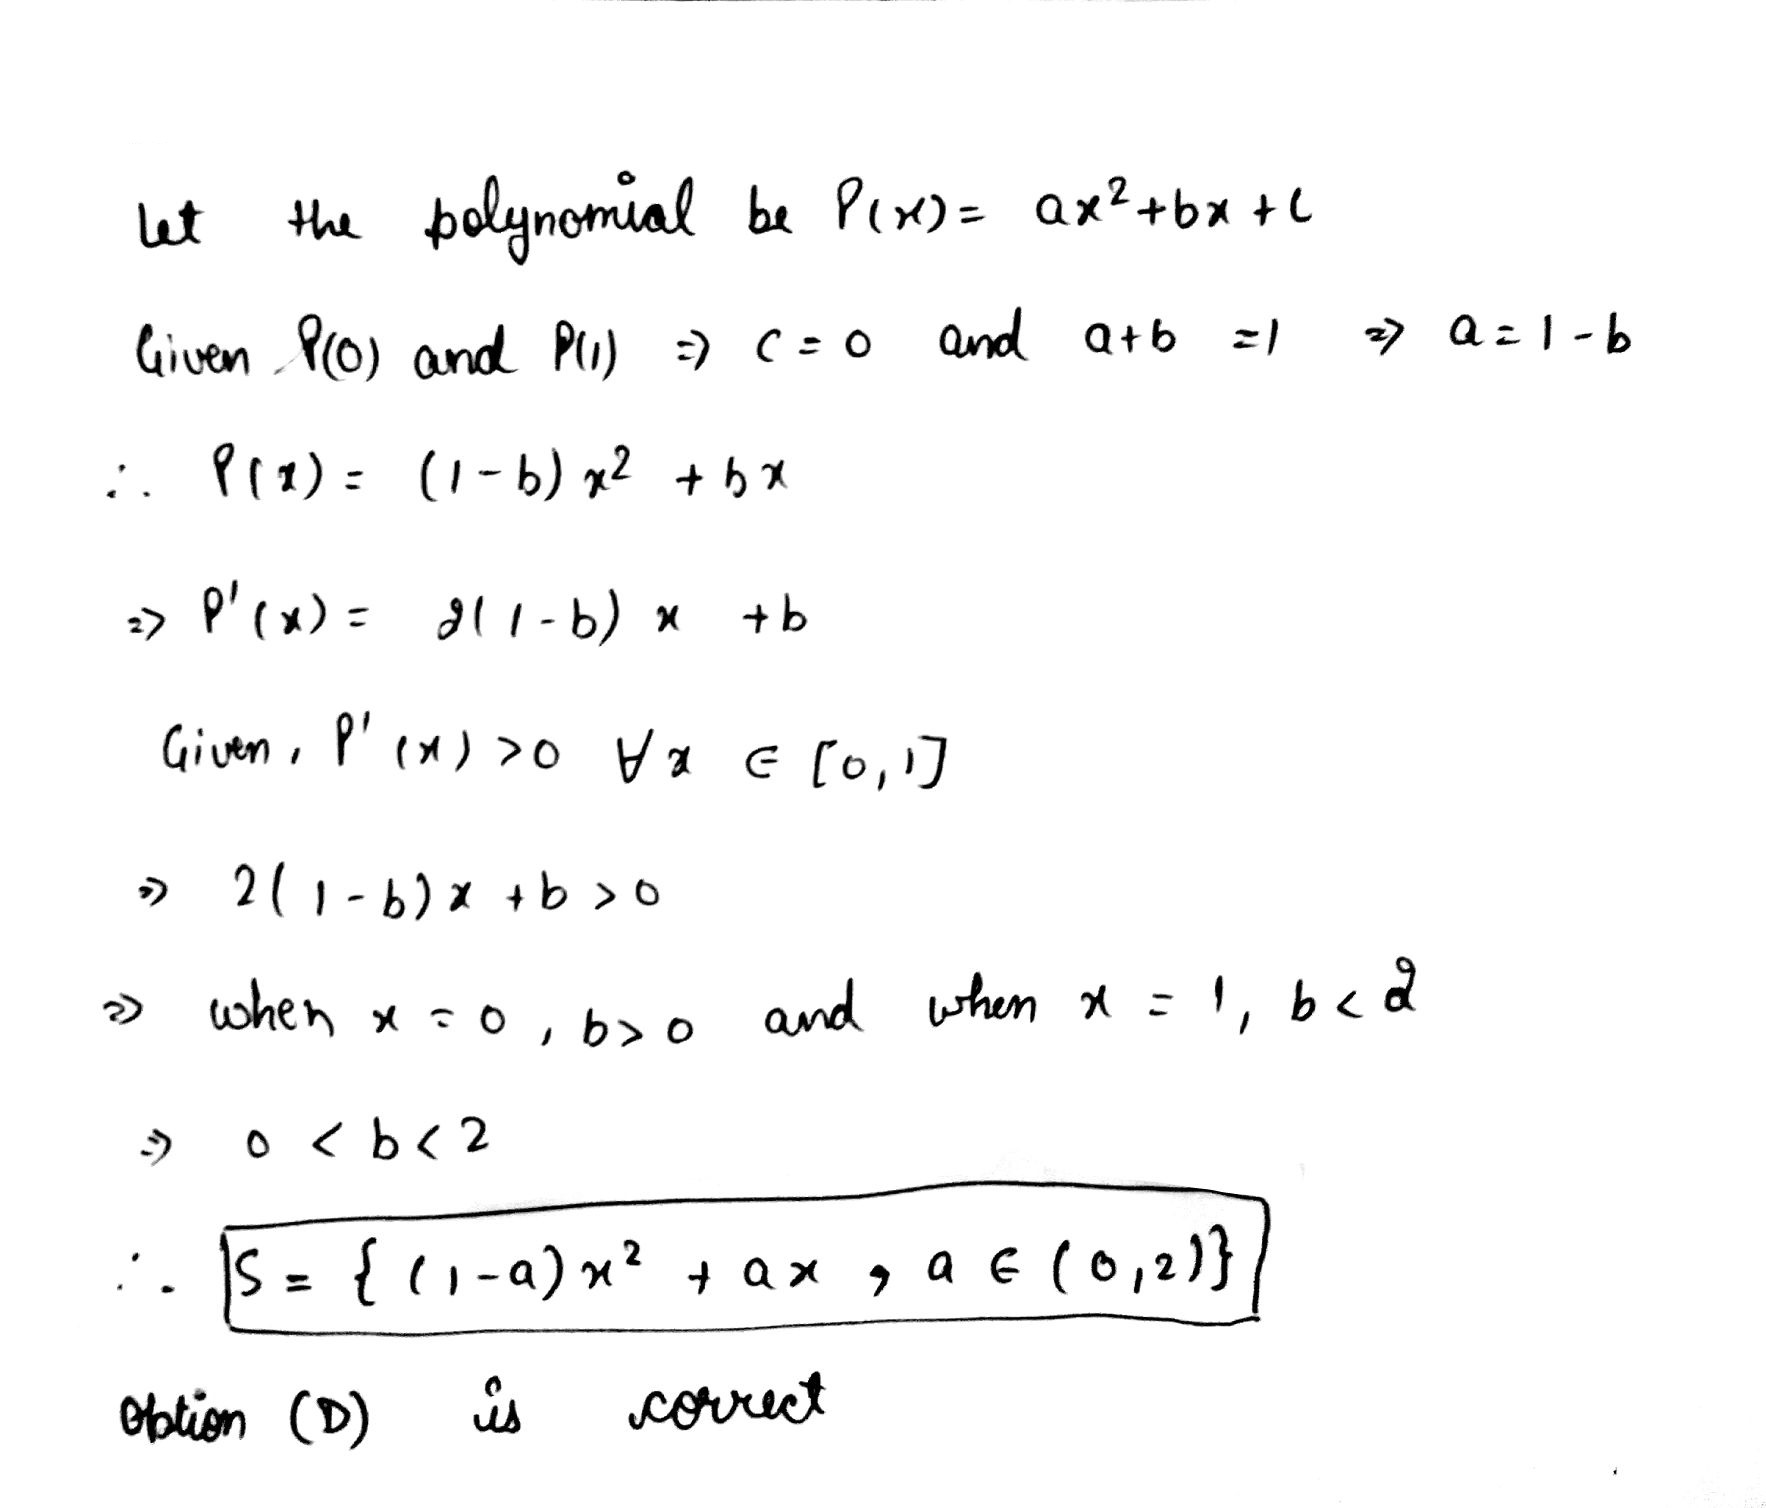 Let the polynomial be P(x) = ax²+bx+c
Given P(0) and P(1) ⇒ c=0 and a+b =1 ⇒ a=1-b
∴ P(x) = (1-b) x² + bx
⇒ P'(x) = 2(1-b) x +b
Given, P'(x) >0 ∀x ∈ [0,1]
⇒ 2(1-b)x +b >0
⇒ when x=0, b>0 and when x = 1, b<2
⇒ 0 < b < 2
∴ S = { (1-a)x² + ax , a ∈ (0,2)}
Option (D) is correct